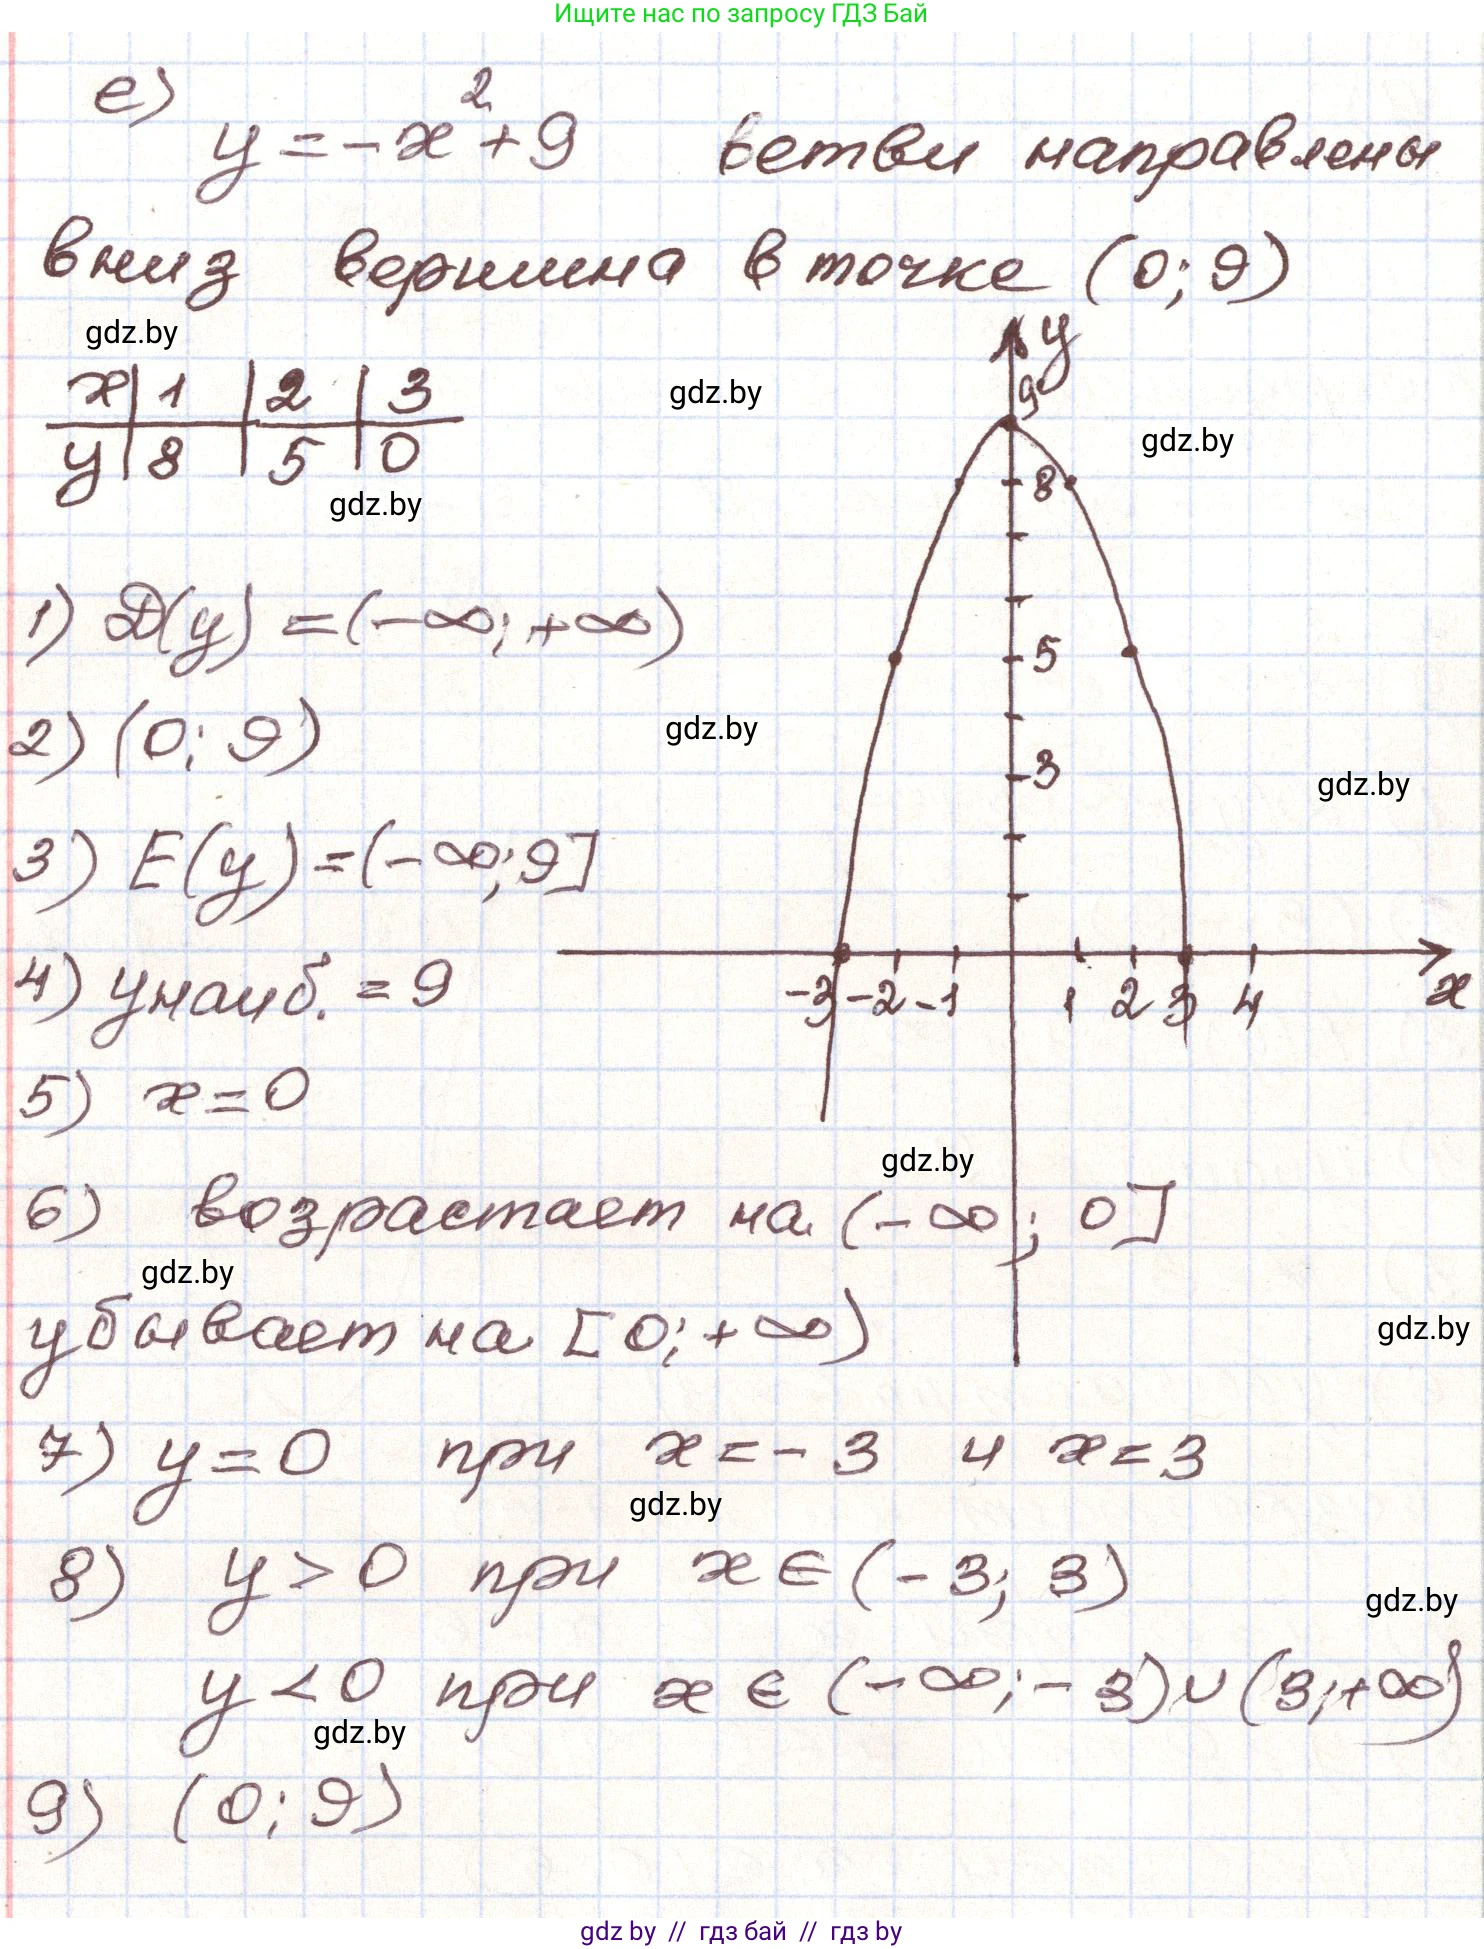 Ищите нас по запросу ГДЗ Бай
е)
y = -x² + 9 ветви направлены
вниз вершина в точке (0; 9)
gdz.by
x | 1 | 2 | 3
y | 8 | 5 | 0
gdz.by
gdz.by
gdz.by
y
9
8
5
3
-3 -2 -1 1 2 3 4
x
1) D(y) = (-∞; +∞)
2) (0; 9)
gdz.by
gdz.by
3) E(y) = (-∞; 9]
4) yнаиб. = 9
5) x = 0
gdz.by
6) возрастает на (-∞; 0]
gdz.by
убывает на [0; +∞)
gdz.by
7) y = 0 при x = -3 и x = 3
gdz.by
8) y > 0 при x ∈ (-3; 3)
gdz.by
y < 0 при x ∈ (-∞; -3) ∪ (3; +∞)
gdz.by
9) (0; 9)
gdz by // гдз бай // gdz by